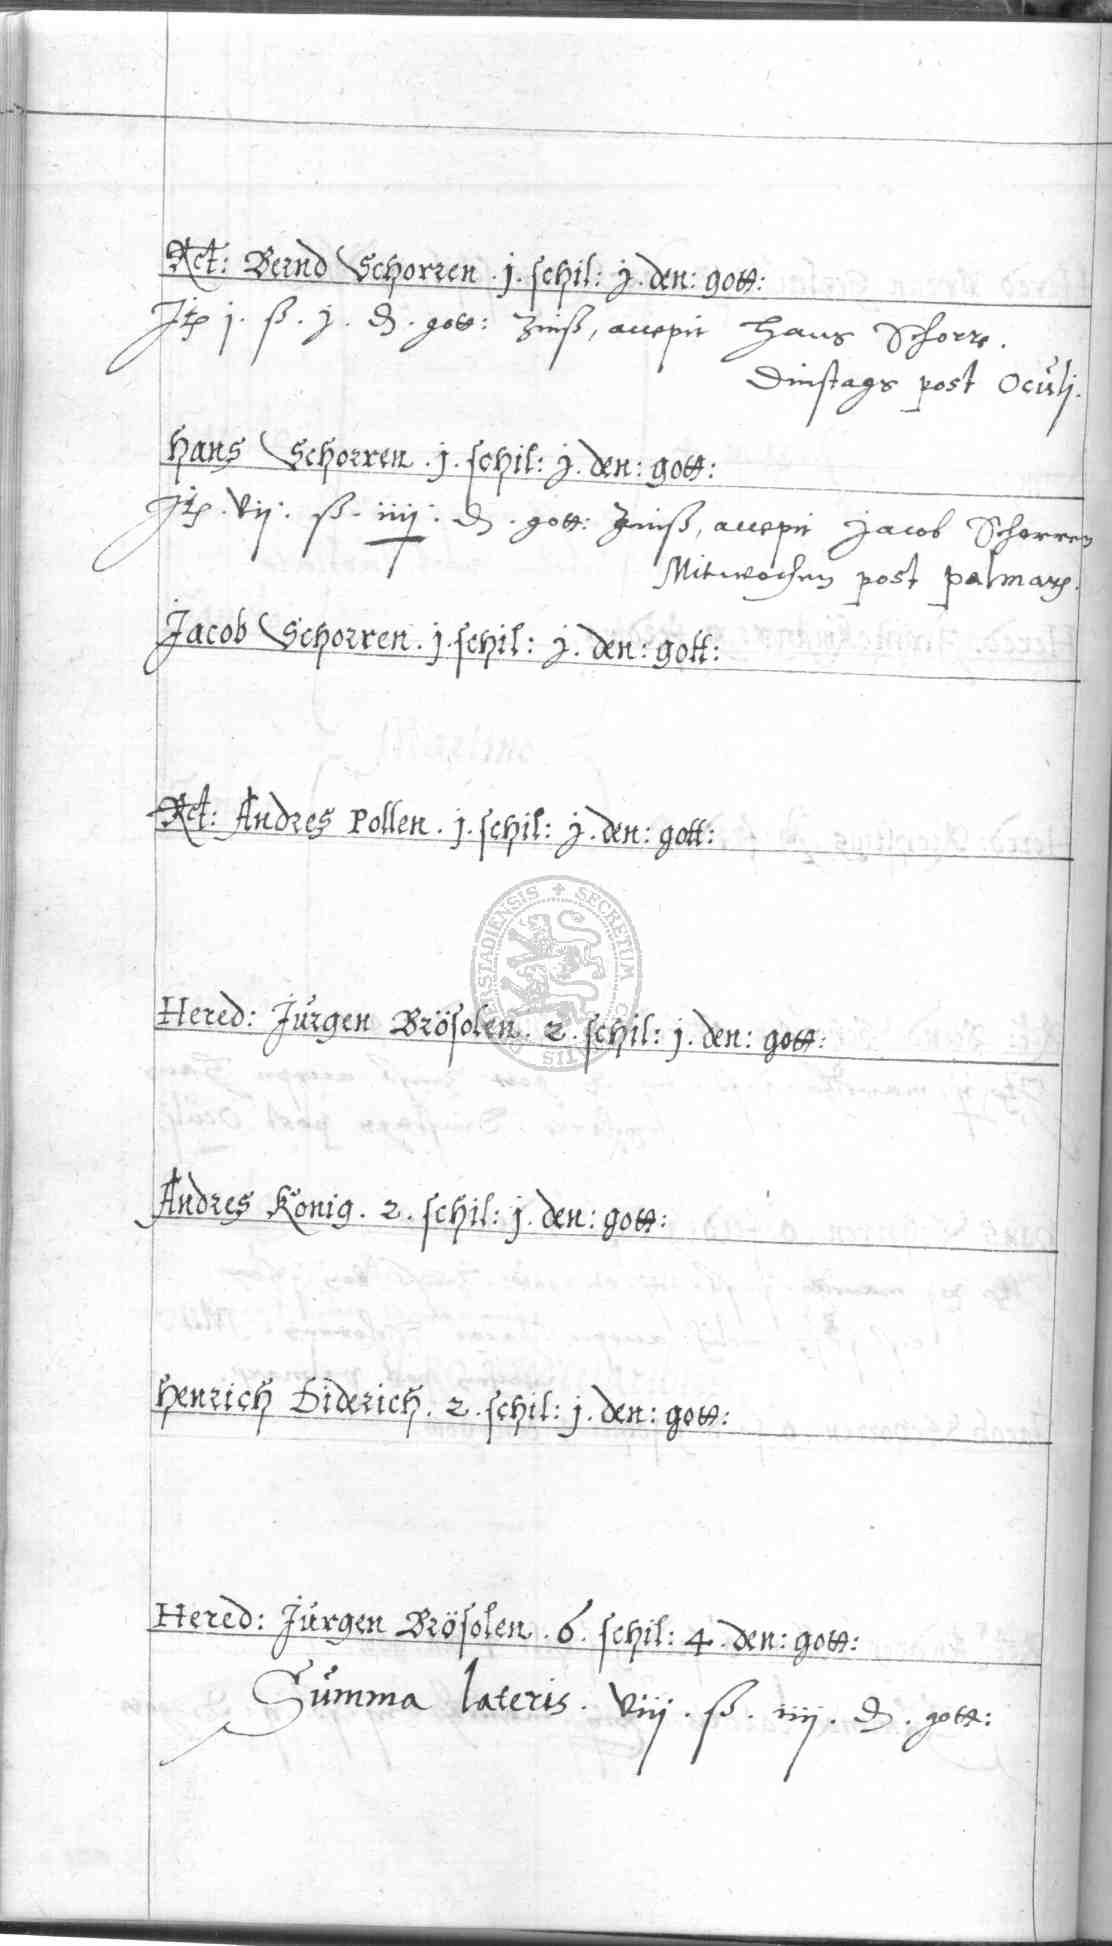 Rct: Bernd Schorren . j . schil: j . den: gott:
Jtz j . ß . j . ₰ . gott: Zinß, accepit Hans Schorre .
Dinstags post Oculj.
Hans Schorren . j . schil: j . den: gott:
Jtz . vij . ß . iiij . ₰ . gott: Zinß, accepit Jacob Schorren
Mitwochen post palmarz.
Jacob Schorren . j . schil: j . den: gott:
Rct: Andres Pollen . j . schil: j . den: gott:
SECRETUM
Hered: Jürgen Brösolen . 2 . schil: j . den: gott:
Andres Konig . 2 . schil: j . den: gott:
Henrich Diderich . 2 . schil: j . den: gott:
Hered: Jürgen Brösolen . 6 . schil: 4 . den: gott:
Summa lateris . viij . ß . iiij . ₰ . gott: